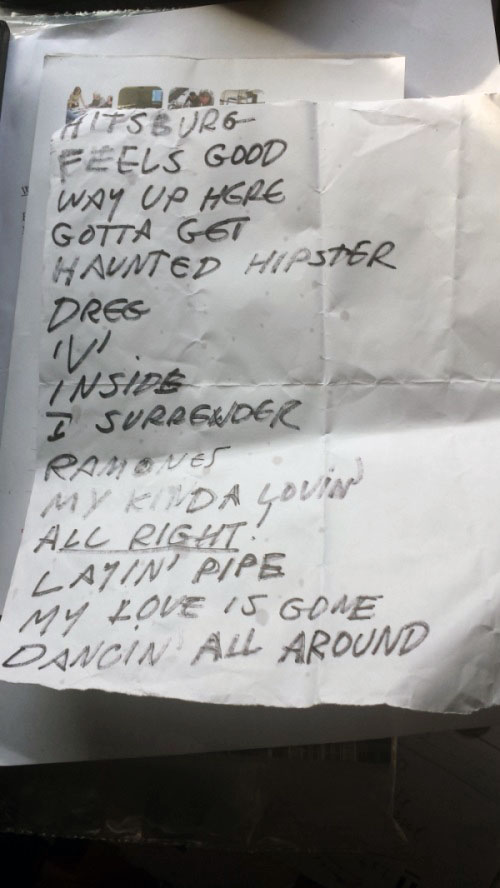 HITSBURG
FEELS GOOD
WAY UP HERE
GOTTA GET
HAUNTED HIPSTER
DREG
'V'
INSIDE
I SURRENDER
RAMONES
MY KINDA LOVIN'
ALL RIGHT
LAYIN' PIPE
MY LOVE IS GONE
DANCIN' ALL AROUND